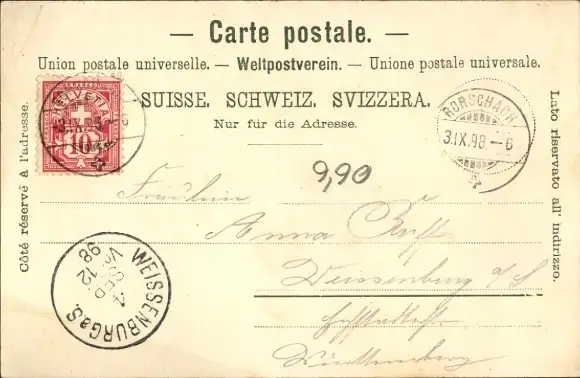 — Carte postale. —
Union postale universelle. — Weltpostverein. — Unione postale universale.
SUISSE. SCHWEIZ. SVIZZERA.
Nur für die Adresse.
Côté réservé à l'adresse.
Lato riservato all' indirizzo.
HELVETIA
10
3.IX.98.-6
RORSCHACH
3.IX.98.-6
9,90
Fräulein
Anna
Weissenburg a/S
Württemberg
WEISSENBURG a.S.
4
SEP
Vm 12
98